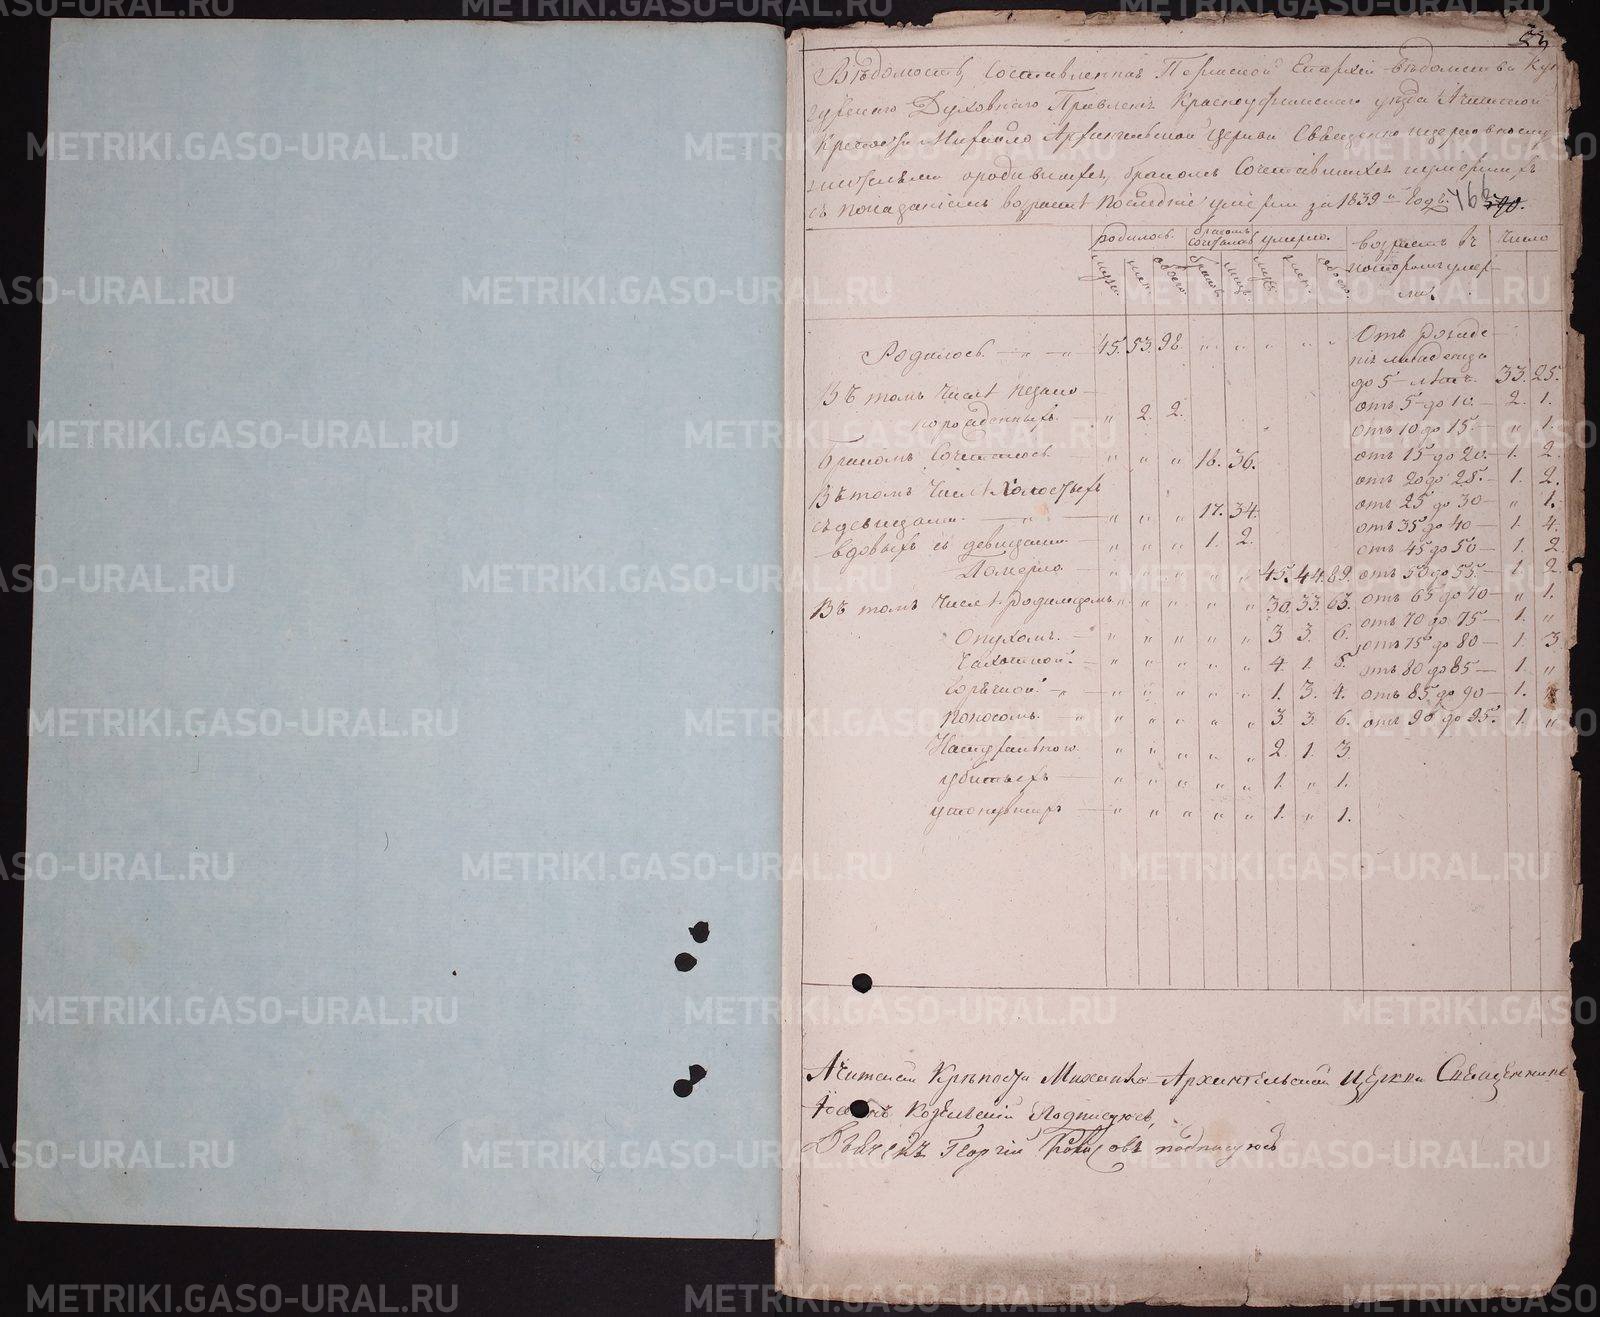 Вѣдомость, Составленная Пермской Епархіи вѣдомства Кун
гурскаго Духовнаго Правленія Красноуфимскаго уѣзда Ачитской
Крепости Михайло Архангельской Церкви Священно церковно служ
ителями о родившихся, бракомъ Сочетавшихся и умершихъ
съ показаніемъ возраста последніе умерли за 1839й Годъ.
родилось. бракомъ сочеталось умерло. возрастъ въ которомъ умерли. Число
мужс. жен. обоего. браковъ. лицъ. мужс. жен. обоего.
Родилось — „ — „ 45. 53. 98. „ „ „ „ „
Въ томъ числѣ незако-
норожденныхъ. „ 2. 2.
Бракомъ Сочеталось — „ „ „ 18. 36.
Въ томъ числѣ Холостыхъ
съ девицами. — „ — „ „ „ 17. 34.
вдовыхъ съ девицами — „ „ „ 1. 2.
Померло — „ „ „ „ „ 45. 44. 89.
Въ томъ числѣ родимцомъ „ „ „ „ „ 30. 33. 63.
Опухомъ. — „ „ „ „ „ 3 3. 6.
Чахоткой. — „ „ „ „ „ 4. 1. 5.
Горячкой. — „ — „ „ „ „ „ 1. 3. 4.
Поносомъ. — „ „ „ „ „ „ 3. 3. 6.
Натурально. „ „ „ „ „ 2. 1. 3.
убитыхъ — „ „ „ „ „ 1. „ 1.
утонувшихъ — „ „ „ „ „ 1. „ 1.
Отъ рожде-
нія младенца
до 5 — лѣтъ. 33. 25.
отъ 5 — до 10. — 2. 1.
отъ 10 до 15. — „ 1.
отъ 15 до 20. — 1. 2.
отъ 20 до 25. — 1. 2.
отъ 25 до 30 — „ 1.
отъ 35 до 40 — 1. 4.
отъ 45 до 50 — 1. 2
отъ 50 до 55. — 1. 2.
отъ 65 до 70 — „ 1.
отъ 70 до 75 — 1. „
отъ 75 до 80 — 1. 3
отъ 80 до 85 — 1. „
отъ 85 до 90 — 1. „
отъ 90 до 95. 1. „
Ачитской Крѣпости Михаило-Архангельской Церкви Священникъ
Козельскій Подписуюсь,
Георгій подписуюсь
METRIKI.GASO-URAL.RU